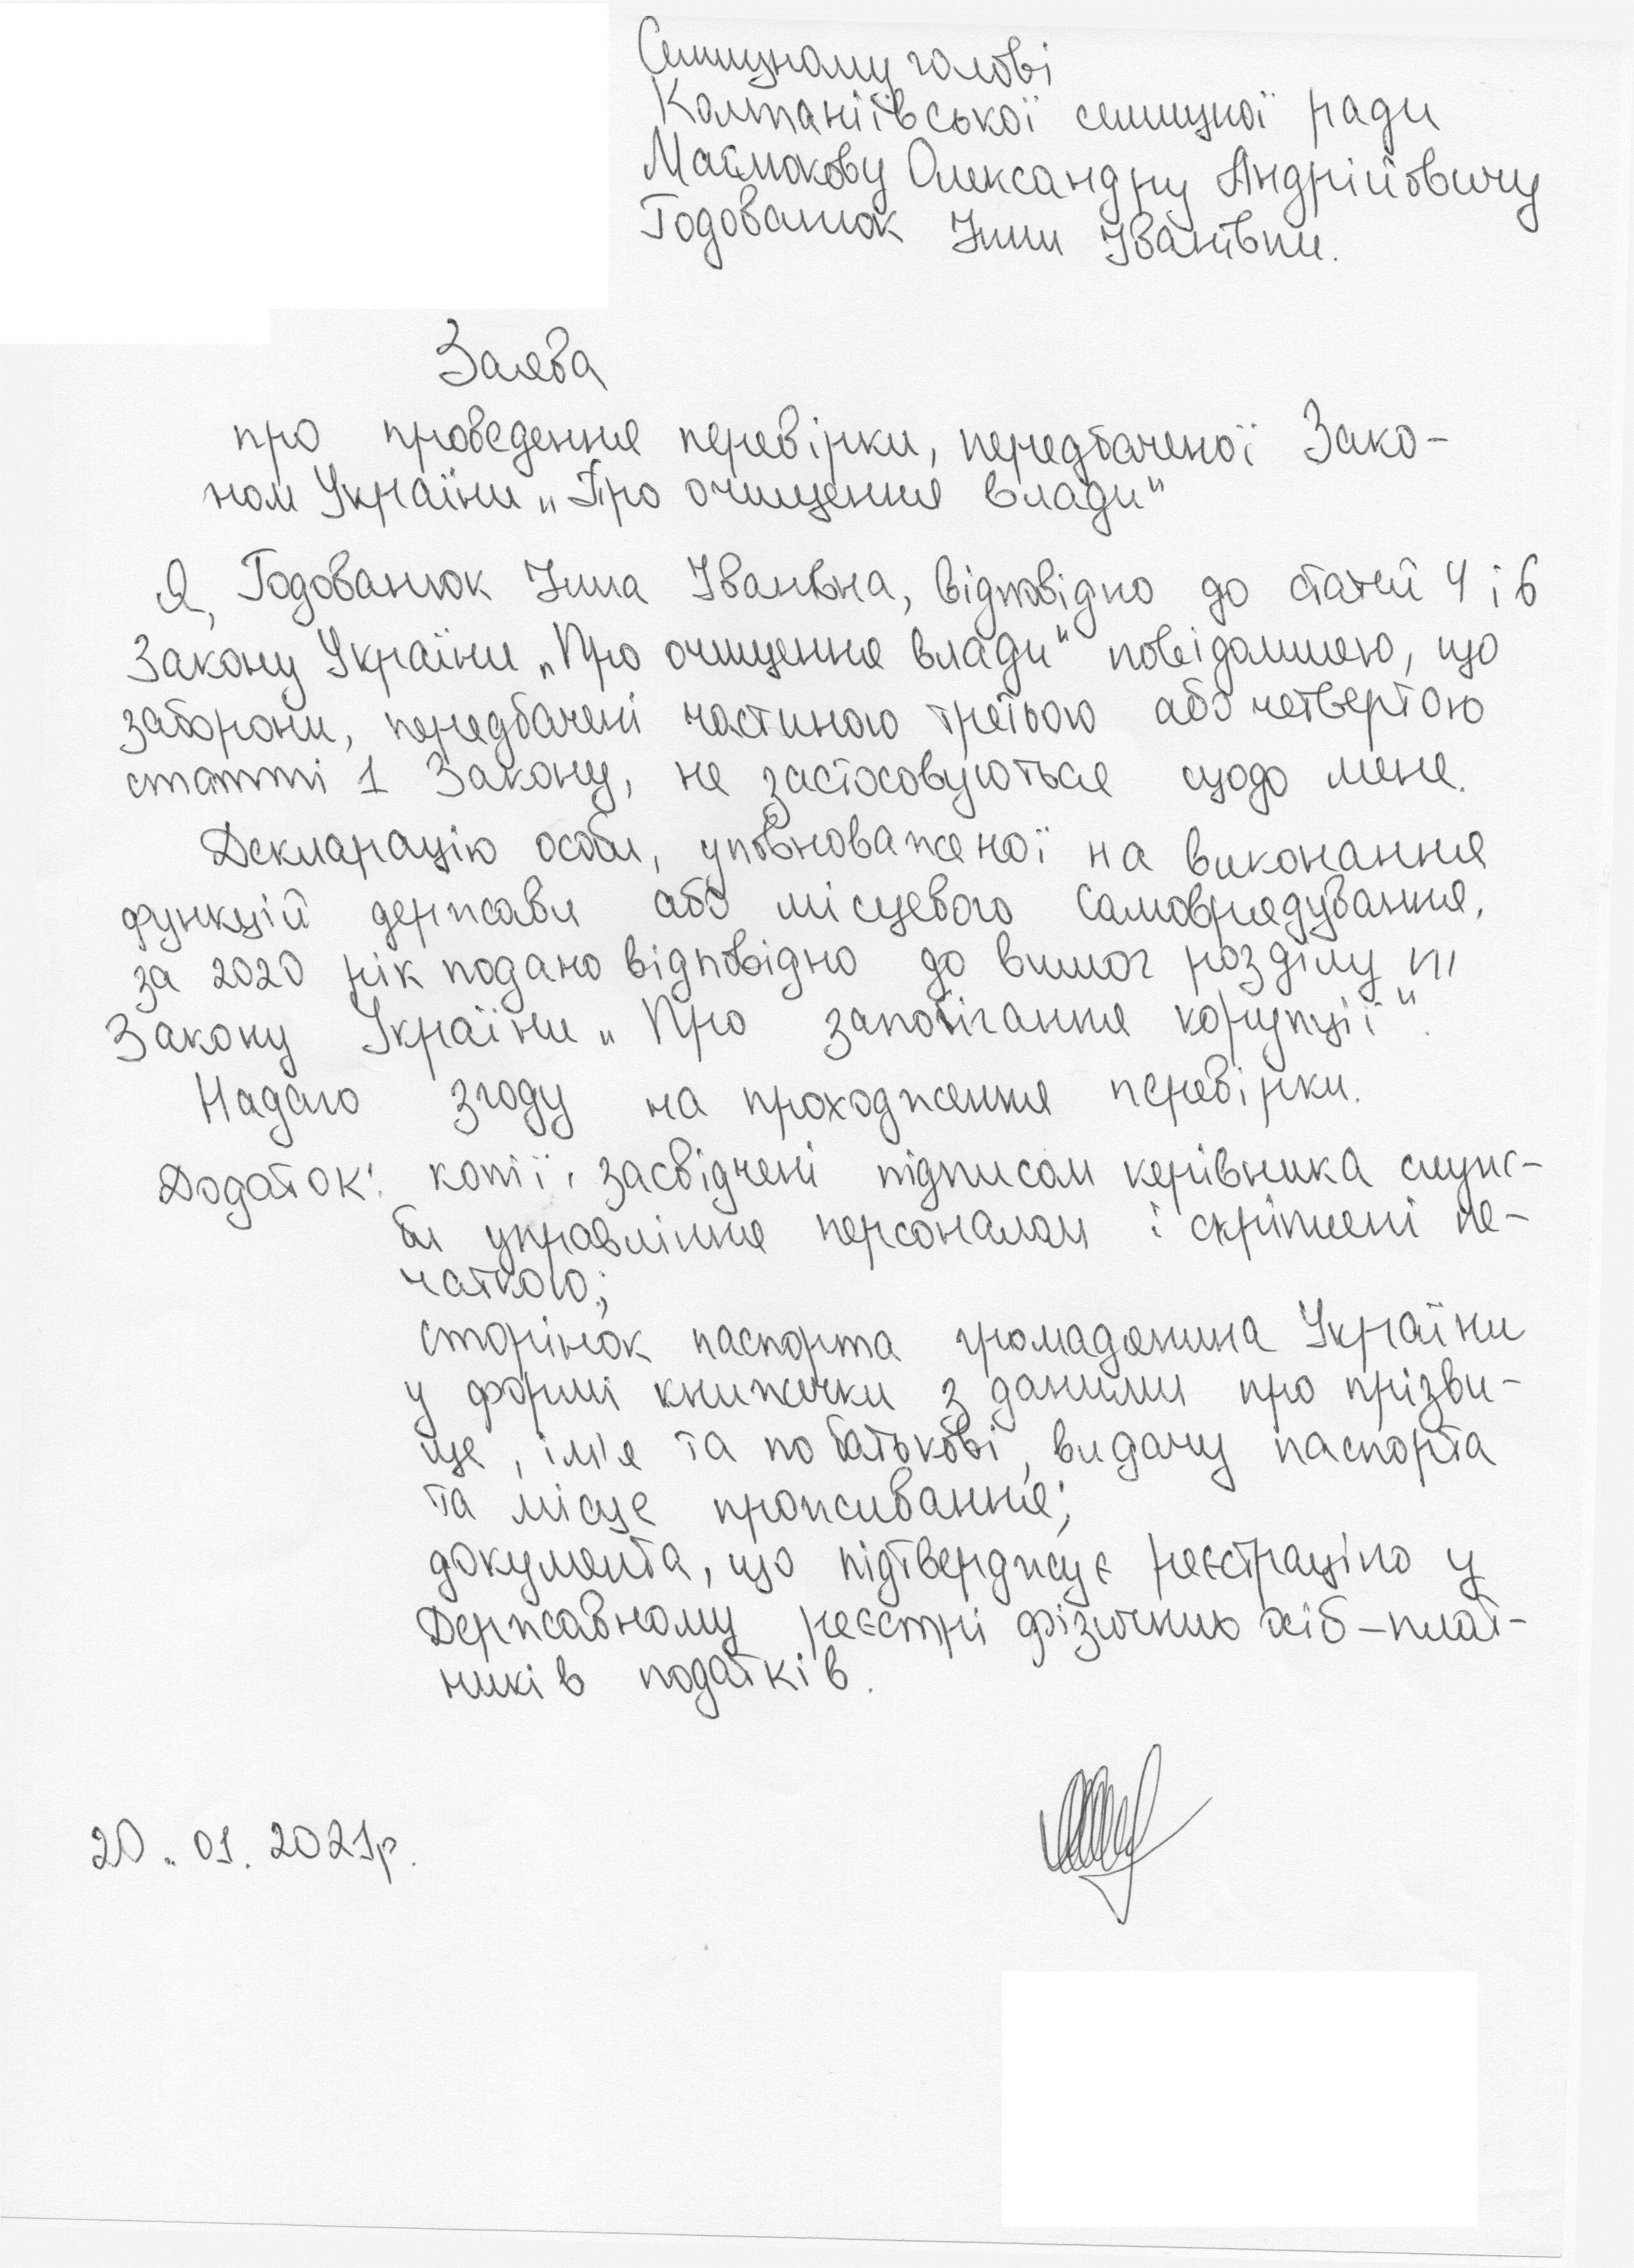 Селищному голові
Компаніївської селищної ради
Олександру Андрійовичу
Годованюк Інни Іванівни.
Заява
про проведення перевірки, передбаченої Зако-
ном України „Про очищення влади"
Я, Годованюк Інна Іванівна, відповідно до статей 4 і 6
Закону України „Про очищення влади" повідомляю, що
заборони, передбачені частиною третьою або четвертою
статті 1 Закону, не застосовуються щодо мене.
Декларацію особи, уповноваженої на виконання
функцій держави або місцевого самоврядування,
за 2020 рік подано відповідно до вимог розділу VII
Закону України „Про запобігання корупції".
Надаю згоду на проходження перевірки.
Додаток: копії, засвідчені підписом керівника служ-
би управління персоналом і скріплені пе-
чаткою;
сторінок паспорта громадянина України
у формі книжечки з даними про прізви-
ще, ім'я та по батькові, видачу паспорта
та місце проживання;
документа, що підтверджує реєстрацію у
Державному реєстрі фізичних осіб-плат-
ників податків.
20.01.2021р.